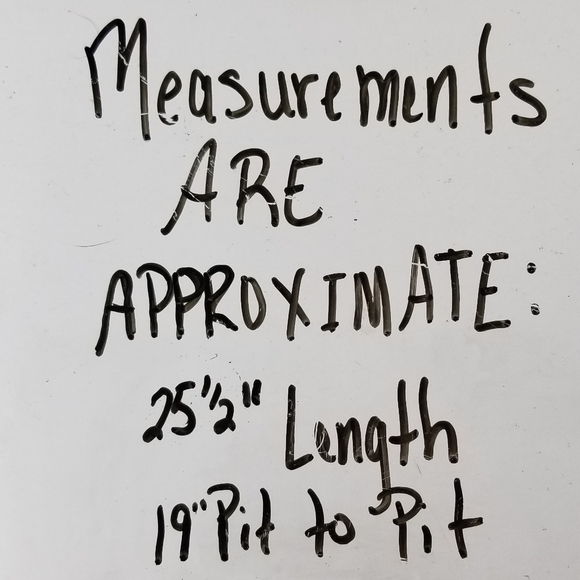 Measurements
ARE
APPROXIMATE:
25 1/2" Length
19" Pit to Pit